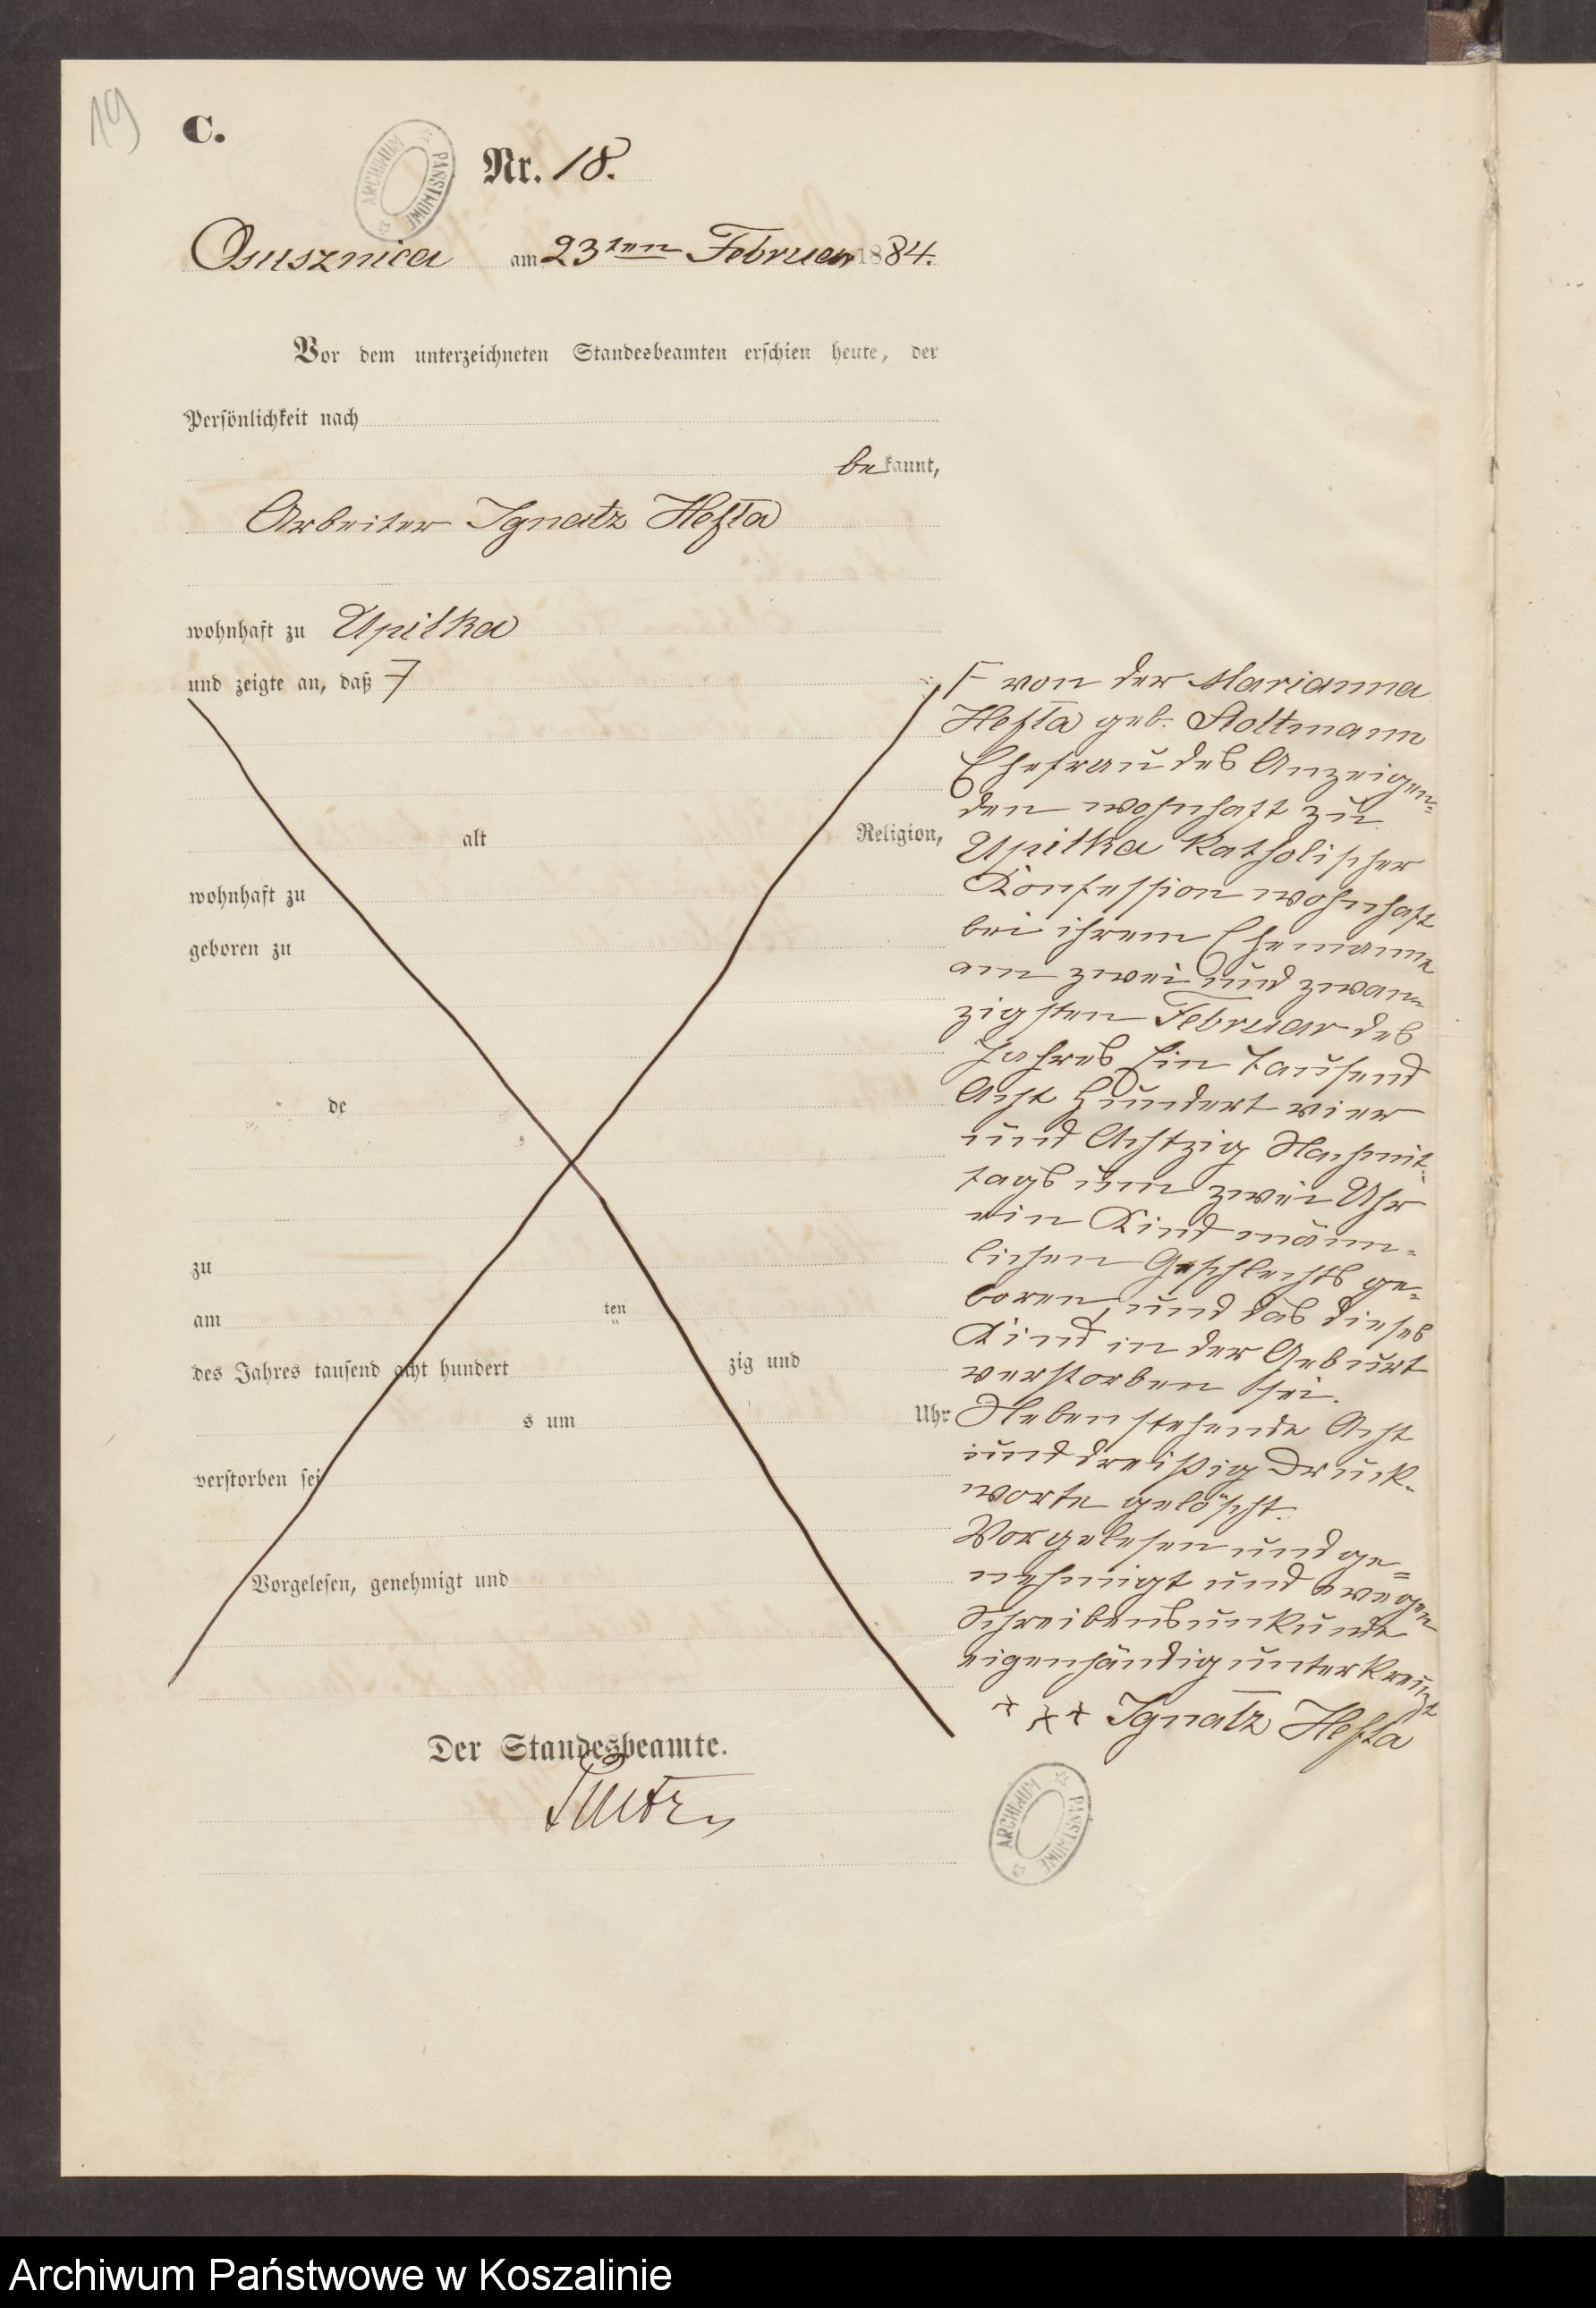 19
C.
ARCHIWUM PAŃSTWOWE
Nr. 18.
Ossusznica am 23ten Februar 1884.
Vor dem unterzeichneten Standesbeamten erschien heute, der
Persönlichkeit nach
bekannt,
Arbeiter Ignatz Hefta
wohnhaft zu Upilka
und zeigte an, daß F
alt Religion,
wohnhaft zu
geboren zu
de
zu
am ten
des Jahres tausend acht hundert zig und
s um Uhr
verstorben sei
Vorgelesen, genehmigt und
Der Standesbeamte.
F von der Marianna
Hefta geb. Stoltmann
Ehefrau des Anzeigen=
den wohnhaft zu
Upilka Katholischer
Konfession wohnhaft
bei ihrem Ehemanne
am zwei und zwan
zigsten Februar des
Jahres Ein Tausend
Acht Hundert vier
und Achtzig Nachmit
tags um zwei Uhr
ein Kind männ=
lichen Geschlechts ge=
boren, und das dieses
Kind in der Geburt
verstorben sei.
Nebenstehende Acht
und dreißig Druck-
worte gelöscht.
Vorgelesen und ge=
nehmigt und wegen
Schreibensunkunde
eigenhändig unterkreuzt
+ + + Ignatz Hefta
ARCHIWUM PAŃSTWOWE
Archiwum Państwowe w Koszalinie